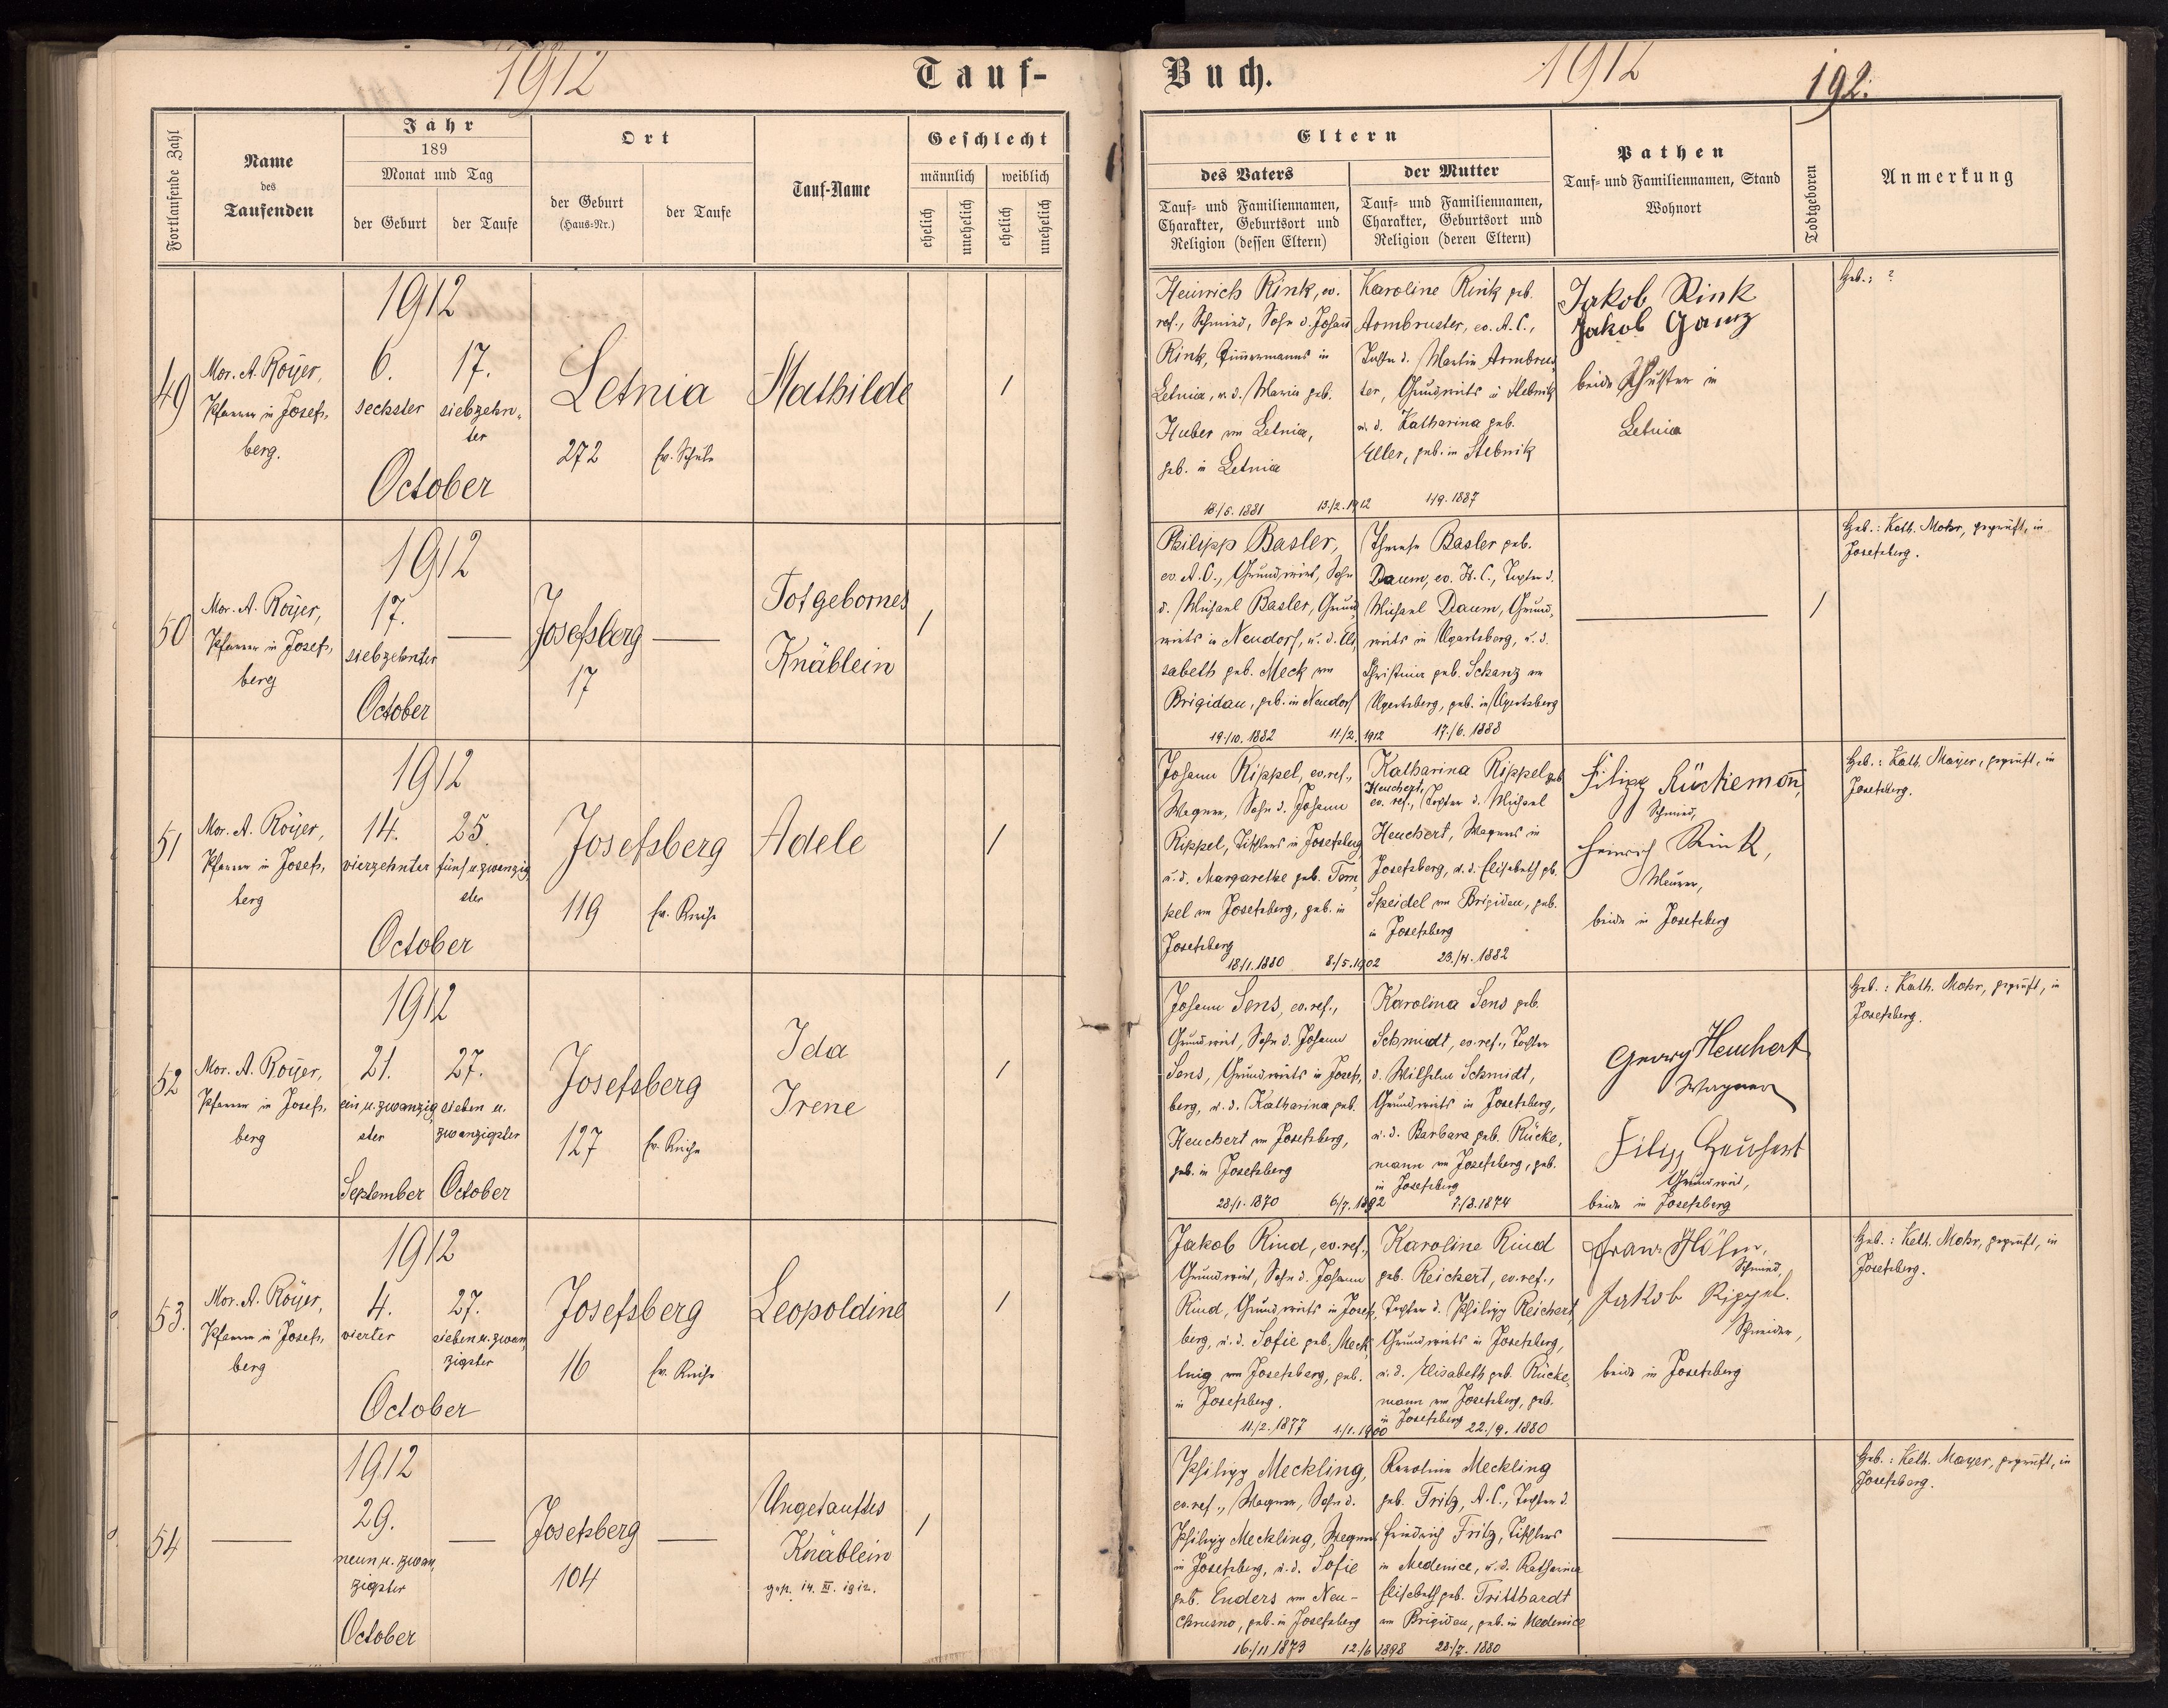 1912
Tauf-
Buch.
1912
192.
Fortlaufende Zahl
Name
des
Taufenden
Jahr
189
Monat und Tag
der Geburt
der Taufe
Ort
der Geburt
(Haus-Nr.)
der Taufe
Tauf-Name
Geschlecht
männlich
weiblich
ehelich
unehelich
ehelich
unehelich
Eltern
des Vaters
Tauf- und Familiennamen,
Charakter, Geburtsort und
Religion (dessen Eltern)
der Mutter
Tauf- und Familiennamen,
Charakter, Geburtsort und
Religion (deren Eltern)
Pathen
Tauf- und Familiennamen, Stand
Wohnort
Todtgeboren
Anmerkung
49
Mor. A. Royer,
Pfarrer in Josefs-
berg.
1912
6.
sechster
17.
siebzehn-
ter
October
Letnia
272
Ev. Schule
Mathilde
/
Heinrich Rink, ev.
ref., Schmied, Sohn d. Johann
Rink, Zimmermanns in
Letnia, u. d. Maria geb.
Huber von Letnia,
geb. in Letnia
18./5. 1881
13./2. 1912
Karoline Rink geb.
Armbruster, ev. A. C.,
Tochter d. Martin Armbrus-
ter, Grundwirts in Stebnik
u. d. Katharina geb.
Eller, geb. in Stebnik
1/9. 1887
Jakob Rink
Jakob Ganz
beide Schuster in
Letnia
Heb.: ?
50
Mor. A. Royer,
Pfarrer in Josefs-
berg
1912
17.
siebzehnter
October
Josefsberg
17
Totgebornes
Knäblein
/
Philipp Basler,
ev. A. C., Grundwirt, Sohn
d. Michael Basler, Grund-
wirts in Neudorf, u. d. Eli-
sabeth geb. Meck von
Brigidau, geb. in Neudorf
19./10. 1882
11./2. 1912
Therese Basler geb.
Daum, ev. H. C., Tochter d.
Michael Daum, Grund-
wirts in Ugartsberg, u. d.
Christina geb. Schanz von
Ugartsberg, geb. in Ugartsberg
17./6. 1888
/
Heb.: Kath. Mohr, geprüft, in
Josefsberg.
51
Mor. A. Royer,
Pfarrer in Josefs-
berg
1912
14.
vierzehnter
25.
fünf u. zwanzig-
ster
October
Josefsberg
119
Ev. Kirche
Adele
/
Johann Rippel, ev. ref.,
Wagner, Sohn d. Johann
Rippel, Tischlers in Josefsberg
u. d. Margarethe geb. Tem-
pel von Josefsberg, geb. in
Josefsberg
18/1. 1880
8./5. 1902
Katharina Rippel geb.
Heuchert,
ev. ref., Tochter d. Michael
Heuchert, Wagners in
Josefsberg, u. d. Elisabeth geb.
Speidel von Brigidau, geb.
in Josefsberg
23./4. 1882
Filipp Rückemann,
Schmied,
Heinrich Rink,
Maurer,
beide in Josefsberg
Heb.: Kath. Mayer, geprüft, in
Josefsberg.
52
Mor. A. Royer,
Pfarrer in Josefs-
berg
1912
21.
ein u. zwanzig-
ster
27.
sieben u.
zwanzigster
September
October
Josefsberg
127
Ev. Kirche
Ida
Irene
/
Johann Sens, ev. ref.,
Grundwirt, Sohn d. Johann
Sens, Grundwirts in Josefs-
berg, u. d. Katharina geb.
Heuchert von Josefsberg,
geb. in Josefsberg
28/1. 1870
6/7. 1892
Karolina Sens geb.
Schmidt, ev. ref., Tochter
d. Wilhelm Schmidt,
Grundwirts in Josefsberg,
u. d. Barbara geb. Rücke-
mann von Josefsberg, geb.
in Josefsberg
7./8. 1874
Georg Heuchert
Wagner
Filipp Heuchert
Grundwirt,
beide in Josefsberg
Heb.: Kath. Mohr, geprüft, in
Josefsberg.
53.
Mor. A. Royer,
Pfarrer in Josefs-
berg
1912
4.
vierter
27.
sieben u. zwan-
zigster
October
Josefsberg
16
Ev. Kirche
Leopoldine
/
Jakob Rind, ev. ref.,
Grundwirt, Sohn d. Johann
Rind, Grundwirts in Josefs-
berg, u. d. Sofie geb. Meck-
ling von Josefsberg, geb.
in Josefsberg.
11./2. 1877
1./1. 1900
Karoline Rind
geb. Reichert, ev. ref.,
Tochter d. Philipp Reichert,
Grundwirts in Josefsberg,
u. d. Elisabeth geb. Rücke-
mann von Josefsberg, geb.
in Josefsberg
22./9. 1880
Schmied
Jakob Rippel.
Schneider,
beide in Josefsberg
Heb.: Kath. Mohr, geprüft, in
Josefsberg.
54
1912
29.
neun u. zwan-
zigster
October
Josefsberg
104
Ungetauftes
Knäblein
gest. 14. XI. 1912.
/
Philipp Meckling,
ev. ref., Wagner, Sohn d.
Philipp Meckling, Wagners
in Josefsberg, u. d. Sofie
geb. Enders von Neu-
Chrusno, geb. in Josefsberg
16./11 1873
12./6 1898
Karoline Meckling
geb. Fritz, A. C., Tochter d.
Friedrich Fritz, Tischlers
in Medenice, u. d. Katharina
Elisabeth geb. Tritthardt
von Brigidau, geb. in Medenice
28./7. 1880
Heb.: Kath. Mayer, geprüft, in
Josefsberg.